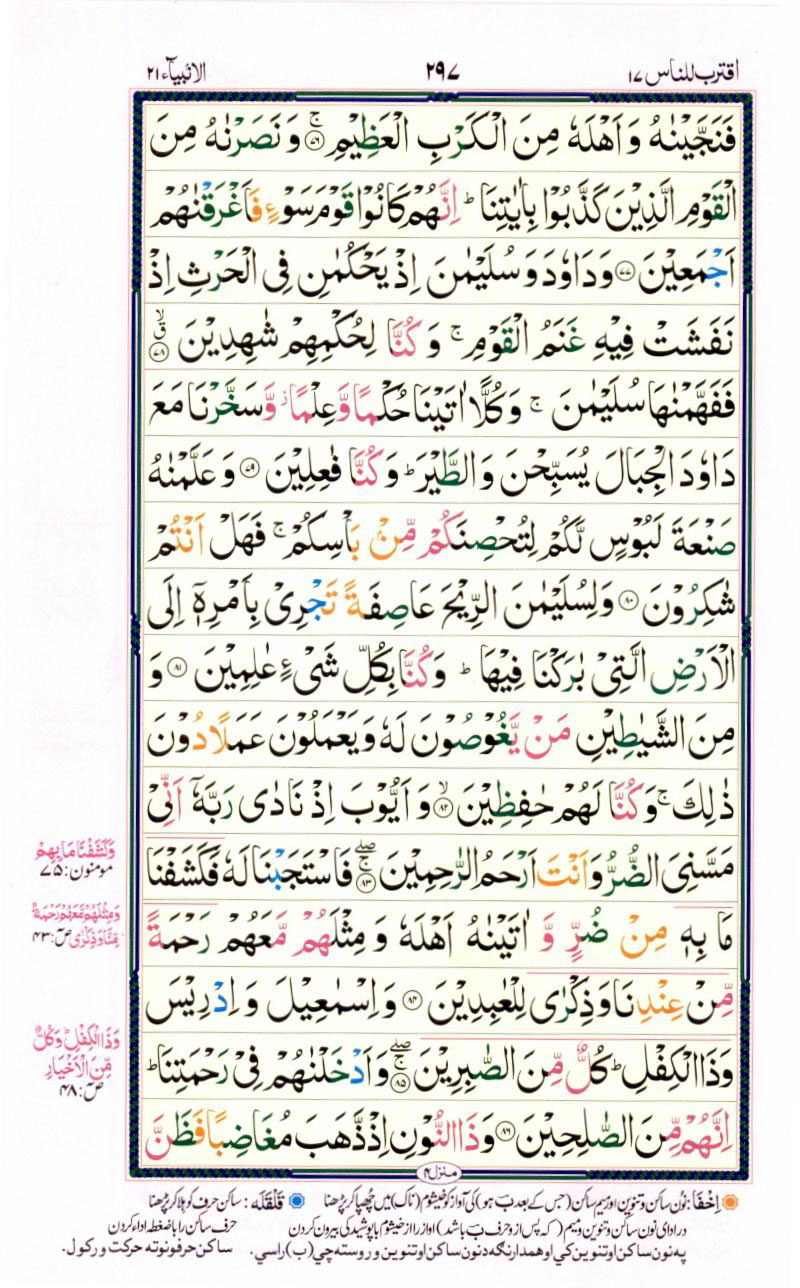 اقترب للناس ۱۷
۲۹۷
الانبیآء ۲۱
فَنَجَّيْنٰهُ وَاَهْلَهٗ مِنَ الْكَرْبِ الْعَظِيْمِ ۚ ﴿۷۶﴾ وَنَصَرْنٰهُ مِنَ
الْقَوْمِ الَّذِيْنَ كَذَّبُوْا بِاٰيٰتِنَا ؕ اِنَّهُمْ كَانُوْا قَوْمَ سَوْءٍ فَاَغْرَقْنٰهُمْ
اَجْمَعِيْنَ ﴿۷۷﴾ وَدَاوٗدَ وَسُلَيْمٰنَ اِذْ يَحْكُمٰنِ فِى الْحَرْثِ اِذْ
نَفَشَتْ فِيْهِ غَنَمُ الْقَوْمِ ۚ وَكُنَّا لِحُكْمِهِمْ شٰهِدِيْنَ ﴿۷۸﴾ ۙق
فَفَهَّمْنٰهَا سُلَيْمٰنَ ۚ وَكُلًّا اٰتَيْنَا حُكْمًا وَّعِلْمًا ز وَّسَخَّرْنَا مَعَ
دَاوٗدَ الْجِبَالَ يُسَبِّحْنَ وَالطَّيْرَ ؕ وَكُنَّا فٰعِلِيْنَ ﴿۷۹﴾ وَعَلَّمْنٰهُ
صَنْعَةَ لَبُوْسٍ لَّكُمْ لِتُحْصِنَكُمْ مِّنْۢ بَاْسِكُمْ ۚ فَهَلْ اَنْتُمْ
شٰكِرُوْنَ ﴿۸۰﴾ وَلِسُلَيْمٰنَ الرِّيْحَ عَاصِفَةً تَجْرِىْ بِاَمْرِهٖۤ اِلَى
الْاَرْضِ الَّتِىْ بٰرَكْنَا فِيْهَا ؕ وَكُنَّا بِكُلِّ شَىْءٍ عٰلِمِيْنَ ﴿۸۱﴾ وَ
مِنَ الشَّيٰطِيْنِ مَنْ يَّغُوْصُوْنَ لَهٗ وَيَعْمَلُوْنَ عَمَلًا دُوْنَ
ذٰلِكَ ۚ وَكُنَّا لَهُمْ حٰفِظِيْنَ ۙ ﴿۸۲﴾ وَاَيُّوْبَ اِذْ نَادٰى رَبَّهٗۤ اَنِّىْ
مَسَّنِىَ الضُّرُّ وَاَنْتَ اَرْحَمُ الرّٰحِمِيْنَ ۚۖ ﴿۸۳﴾ فَاسْتَجَبْنَا لَهٗ فَكَشَفْنَا
مَا بِهٖ مِنْ ضُرٍّ وَّاٰتَيْنٰهُ اَهْلَهٗ وَمِثْلَهُمْ مَّعَهُمْ رَحْمَةً
مِّنْ عِنْدِنَا وَذِكْرٰى لِلْعٰبِدِيْنَ ﴿۸۴﴾ وَاِسْمٰعِيْلَ وَاِدْرِيْسَ
وَذَا الْكِفْلِ ؕ كُلٌّ مِّنَ الصّٰبِرِيْنَ ۚۖ ﴿۸۵﴾ وَاَدْخَلْنٰهُمْ فِىْ رَحْمَتِنَا ؕ
اِنَّهُمْ مِّنَ الصّٰلِحِيْنَ ﴿۸۶﴾ وَذَا النُّوْنِ اِذْ ذَّهَبَ مُغَاضِبًا فَظَنَّ
وَكَشَفْنَا مَا بِهِمْ
مومنون: ۷۵
وَمِثْلَهُمْ مَّعَهُمْ رَحْمَةً
مِّنَّا وَذِكْرٰى صٓ: ۴۳
وَذَا الْكِفْلِ ؕ وَكُلٌّ
مِّنَ الْاَخْيَارِ
صٓ: ۴۸
منزل ۴
اِخفَا: نُون ساکن و تنوین اور میم ساکن (جس کے بعد ب ہو) کی آواز کو خیشوم (ناک) میں چُھپا کر پڑھنا
قَلقَلَه: ساکن حرف کو ہلا کر پڑھنا
در ادای نون ساکن و تنوین و میم (که پس از و حرف ب باشد) آواز را از خیشوم با پوشیدگی بیرون کردن
حرف ساکن را با ضغط اداء کردن
په نون ساکن او تنوین کي او همدا رنگه د نون ساکن او تنوین وروسته چي (ب) راسي.
ساکن حرفونو ته حرکت ورکول.